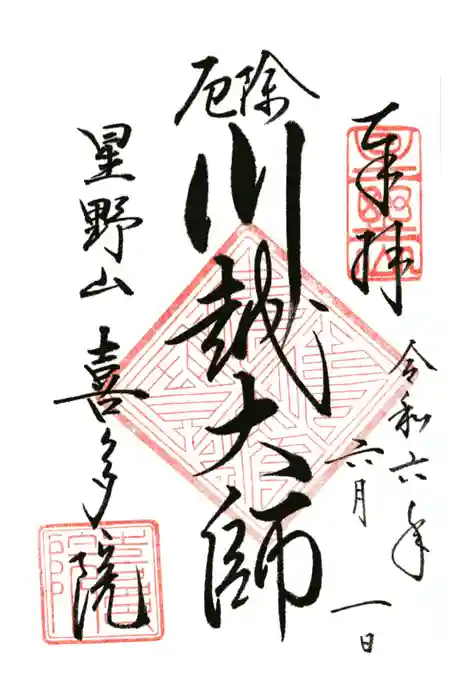 奉拝
令和六年
六月
一日
厄除
川越大師
星野山
喜多院